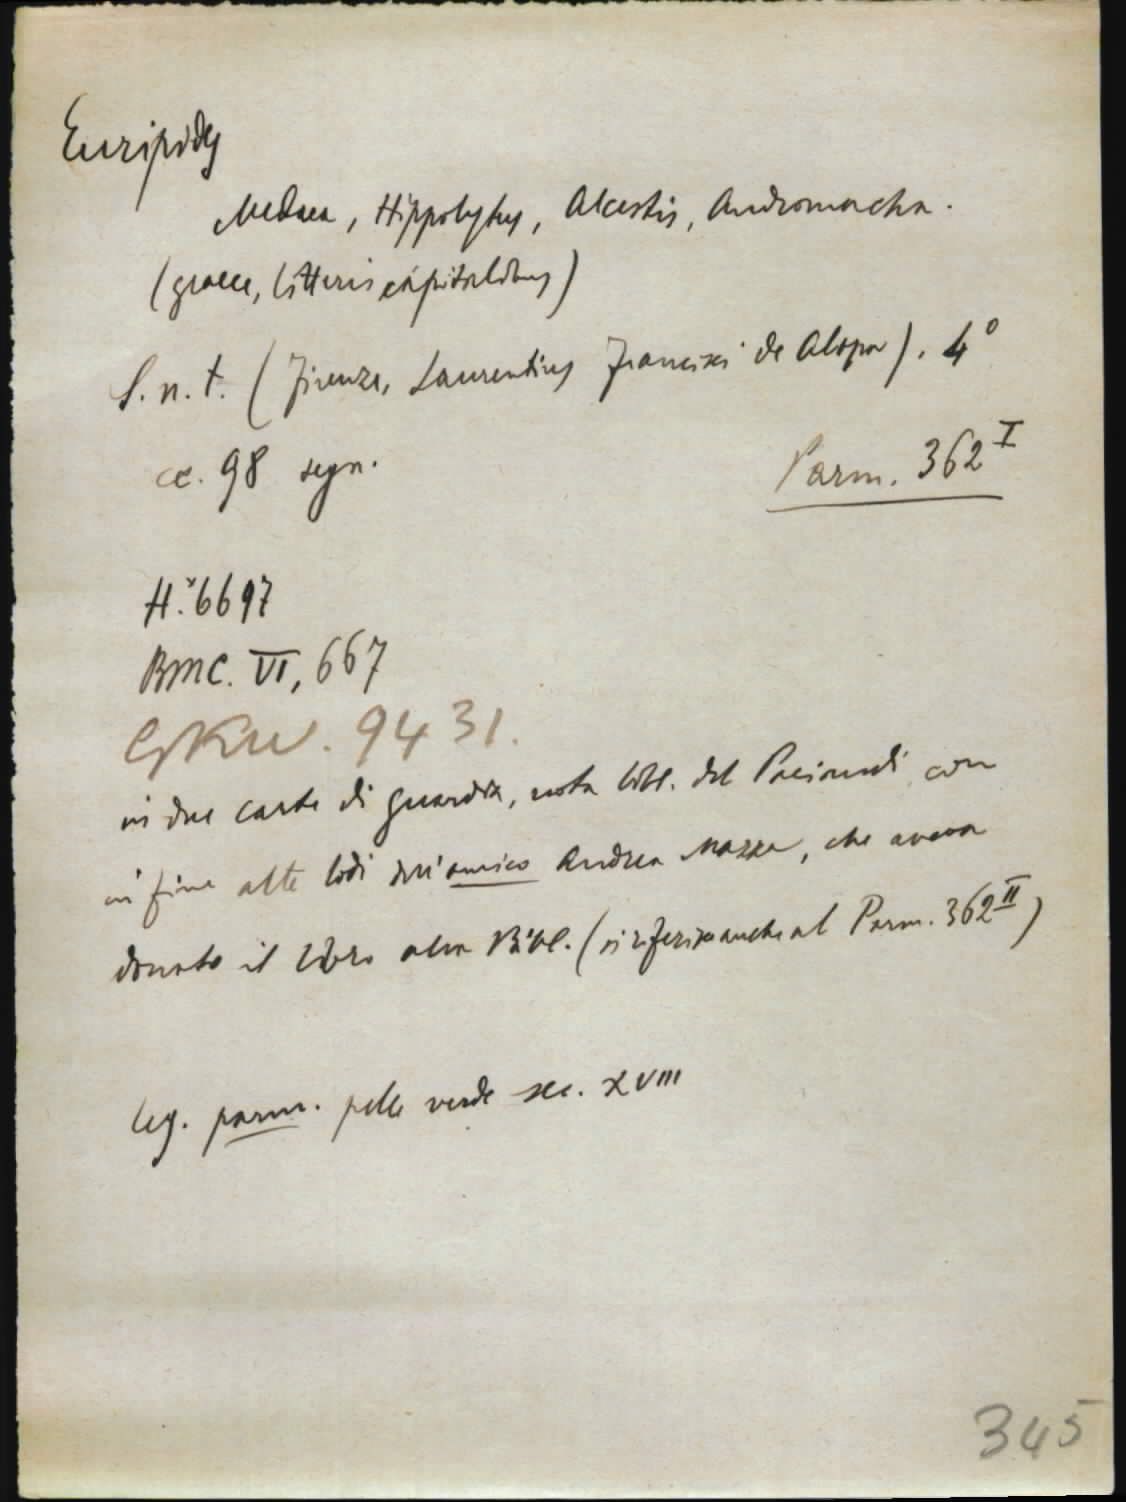 Euripides
Medaea, Hippolytus, Alcestis, Andromacha.
(graece, litteris capitalibus)
S. n. t. (Firenze, Laurentius Francisci de Alopa). 4°
cc. 98 segn.
Parm. 362 I
H. 6697
BMC. VI, 667
GKW. 9431.
in due carte di guardia, nota bibl. del Paciaudi con
in fine alte lodi dell'amico Andrea Mazza, che aveva
donato il libro alla Bibl. (si riferisce anche al Parm. 362 II)
leg. parm. pelle verde sec. XVIII
345